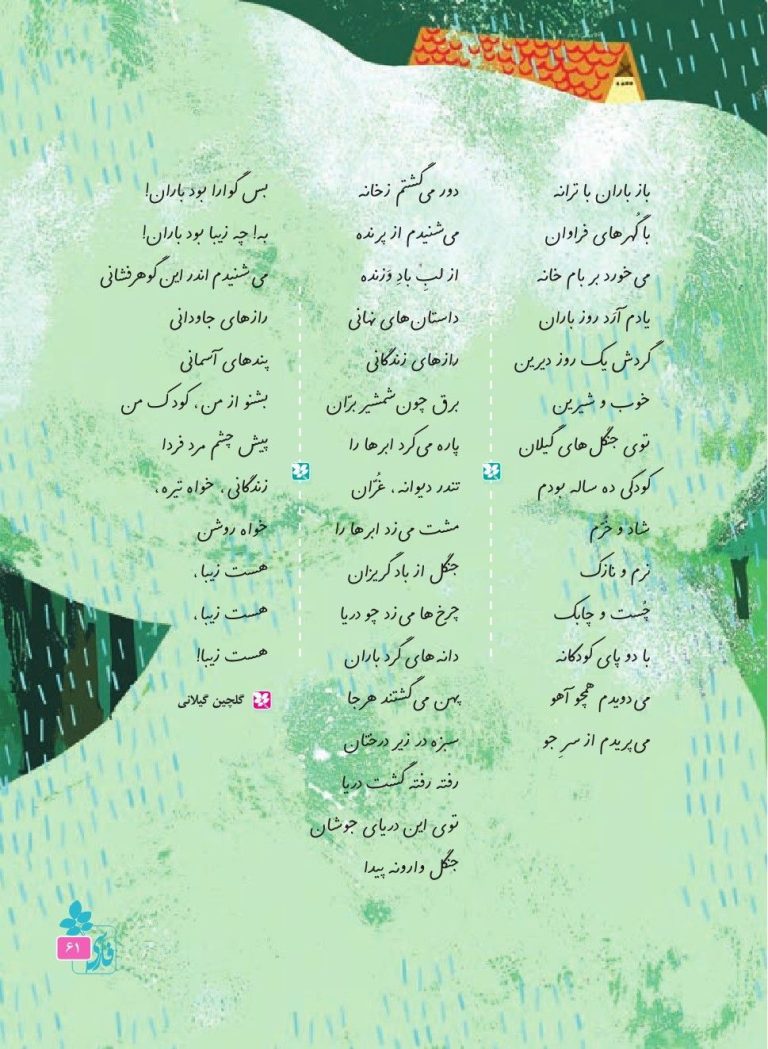 باز باران با ترانه
با گُهرهای فراوان
می‌خورد بر بام خانه
یادم آرَد روز باران
گردش یک روز دیرین
خوب و شیرین
توی جنگل‌های گیلان
کودکی ده ساله بودم
شاد و خُرّم
نرم و نازک
چُست و چابک
با دو پای کودکانه
می‌دویدم همچو آهو
می‌پریدم از سرِ جو
دور می‌گشتم ز خانه
می‌شنیدم از پرنده
از لبِ بادِ وَزنده
داستان‌های نهانی
رازهای زندگانی
برق چون شمشیر برّان
پاره می‌کرد ابرها را
تندر دیوانه، غُرّان
مشت می‌زد ابرها را
جنگل از باد گریزان
چرخ‌ها می‌زد چو دریا
دانه‌های گرد باران
پهن می‌گشتند هر جا
سبزه در زیر درختان
رفته رفته گشت دریا
توی این دریای جوشان
جنگل وارونه پیدا
بس گوارا بود باران!
به! چه زیبا بود باران!
می‌شنیدم اندر این گوهرفشانی
رازهای جاودانی
پندهای آسمانی
بشنو از من، کودک من
پیش چشم مرد فردا
زندگانی، خواه تیره،
خواه روشن
هست زیبا،
هست زیبا،
هست زیبا!
گلچین گیلانی
فارسی
۶۱